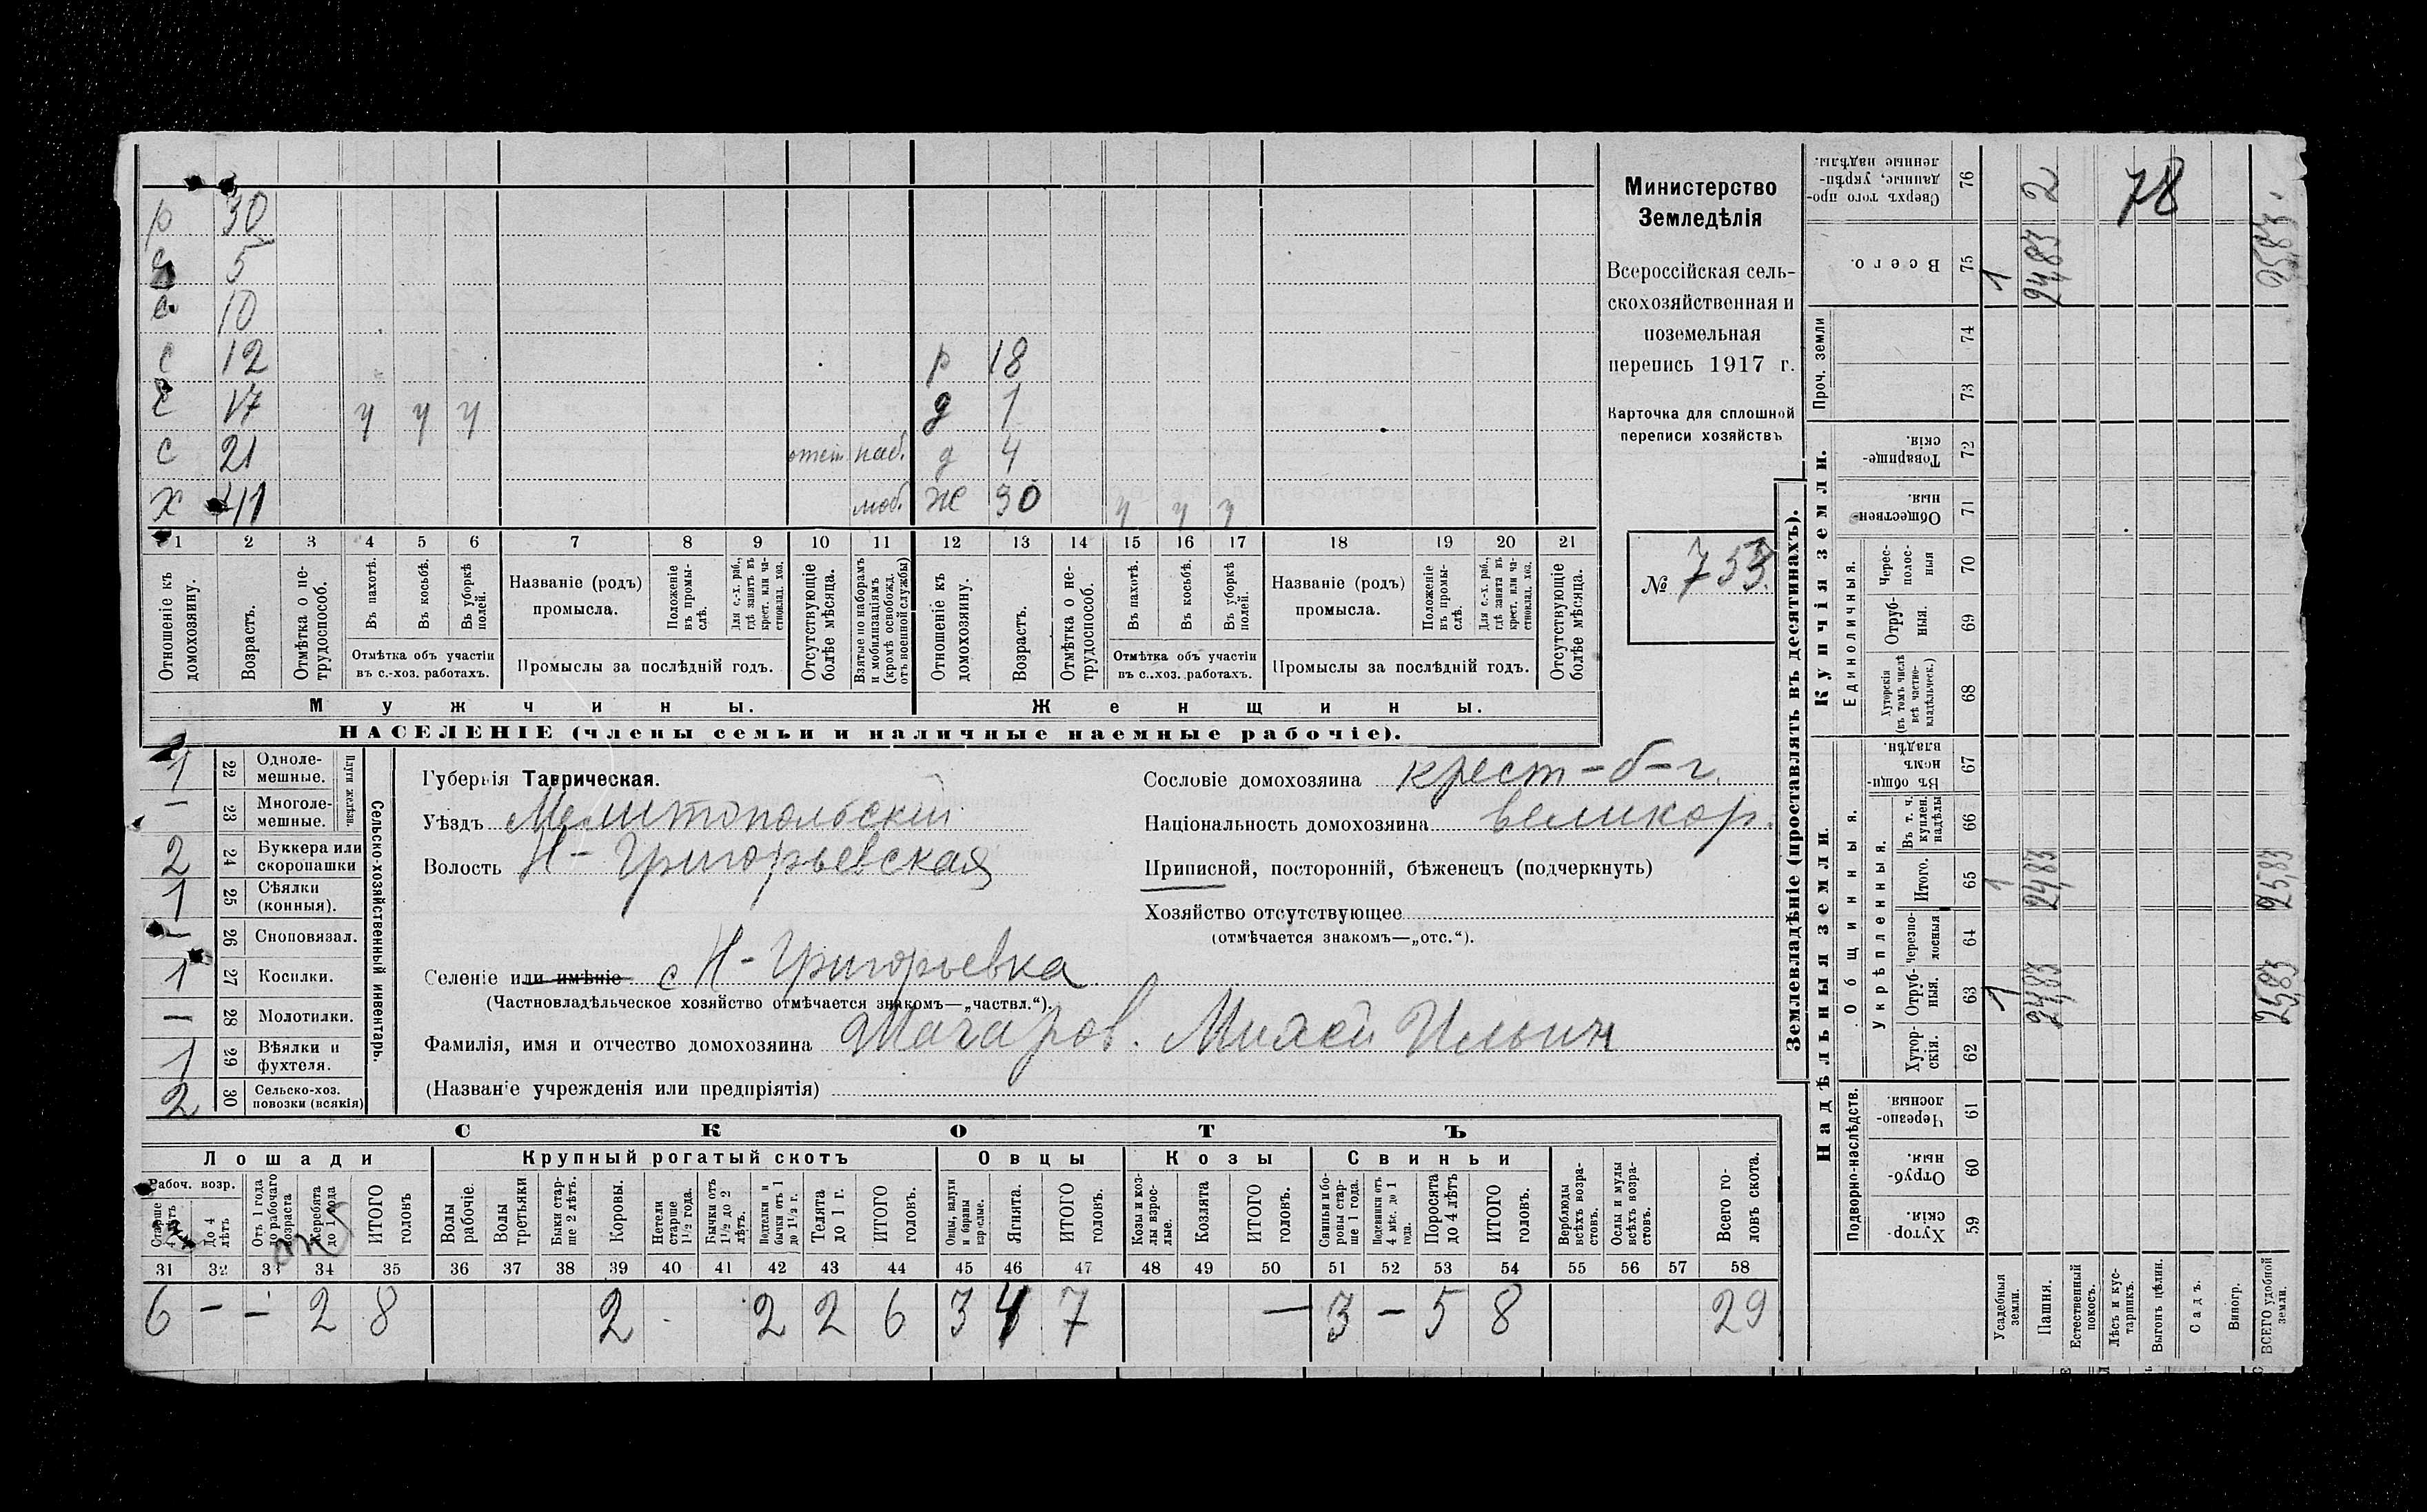 р 30
5
с 10
с 12 р 18
с 17 у у у д 1
с 21 отст. наб. д 4
х 41 моб. ж 30 у у у
1 2 3 4 5 6 7 8 9 10 11 12 13 14 15 16 17 18 19 20 21
Отношеніе къ домохозяину.
Возрастъ.
Отмѣтка о нетрудоспособ.
Въ пахотѣ.
Въ косьбѣ.
Въ уборкѣ полей.
Отмѣтка объ участіи
въ с.-хоз. работахъ.
Названіе (родъ)
промысла.
Положеніе въ промыслѣ.
Для с.-х. раб., гдѣ занятъ въ крест. или частновлад. хоз.
Промыслы за послѣдній годъ.
Отсутствующіе болѣе мѣсяца.
Взятые по наборамъ и мобилизаціямъ (кромѣ освобожд. отъ военной службы)
Отношеніе къ домохозяину.
Возрастъ.
Отмѣтка о нетрудоспособ.
Въ пахотѣ.
Въ косьбѣ.
Въ уборкѣ полей.
Отмѣтка объ участіи
въ с..хоз. работахъ.
Названіе (родъ)
промысла.
Положеніе въ промыслѣ.
Для с.-х. раб., гдѣ занята въ крест. или частновлад. хоз.
Промыслы за послѣдній годъ.
Отсутствующіе болѣе мѣсяца.
Мужчины. Женщины.
НАСЕЛЕНІЕ (члены семьи и наличные наемные рабочіе).
Министерство
Земледѣлія
Всероссійская сель-
скохозяйственная и
поземельная
перепись 1917 г.
Карточка для сплошной
переписи хозяйствъ
№ 733.
1 22 Одноле-
мешные.
— 23 Многоле-
мешные.
Плуги желѣзн.
2 24 Буккера или
скоропашки
1 25 Сѣялки
(конныя).
— 26 Сноповязал.
1 27 Косилки.
— 28 Молотилки.
1 29 Вѣялки и
фухтеля.
2 30 Сельско-хоз.
повозки (всякія)
Сельско-хозяйственный инвентарь.
Губернія Таврическая.
Уѣздъ Мелитопольскій
Волость Н-Григорьевская
Селеніе или имѣніе с Н-Григорьевка
(Частновладѣльческое хозяйство отмѣчается знакомъ—„частвл.“).
Фамилія, имя и отчество домохозяина Ильин
(Названіе учрежденія или предпріятія)
Сословіе домохозяина крест-б-г.
Національность домохозяина великор.
Приписной, посторонній, бѣженецъ (подчеркнуть)
Хозяйство отсутствующее
(отмѣчается знакомъ—„отс.“).
СКОТЪ
Лошади Крупный рогатый скотъ Овцы Козы Свиньи
Рабоч. возр.
Старше 4 лѣтъ
До 4 лѣтъ
Отъ 1 года до рабочаго возраста
Жеребята до 1 года
ИТОГО головъ
Волы рабочіе.
Волы третьяки
Быки старше 2 лѣтъ.
Коровы.
Нетели старше 1½ года.
Бычки отъ 1½ до 2 лѣтъ.
Подтелки и бычки отъ 1 до 1½ г.
Телята до 1 г.
ИТОГО головъ.
Овцы, валухи и бараны взрослые.
Ягнята.
ИТОГО головъ.
Козы и козлы взрослые.
Козлята
ИТОГО головъ.
Свиньи и боровы старше 1 года.
Подсвинки отъ 4 мѣс. до 1 года.
Поросята до 4 лѣтъ
ИТОГО головъ.
Верблюды всѣхъ возрастовъ.
Ослы и мулы всѣхъ возрастовъ.
Всего головъ скота.
31 32 33 34 35 36 37 38 39 40 41 42 43 44 45 46 47 48 49 50 51 52 53 54 55 56 57 58
6 — — 2 8 2 2 2 6 3 4 7 — 3 — 5 8 29
Землевладѣніе (проставлять въ десятинахъ).
Надѣльныя земли. Купчія земли.
Подворно-наслѣдств.
Общинныя.
Укрѣпленныя.
Единоличныя.
Проч. земли
Хуторскія. 59
Отрубныя. 60
Черезполосныя 61
Хуторскія. 62
Отрубныя. 63 1 24,83 25,83
Черезполосныя 64
Итого. 65 1 24,83 25,83
Въ т. ч. куплен. надѣлы 66
Въ общинномъ владѣн. 67
Хуторскія (въ томъ числѣ всѣ частновладѣльческ.) 68
Отрубныя. 69
Черезполосныя 70
Общественныя. 71
Товарищескія. 72
73
74
Всего. 75 1 24,83 25,83
Сверхъ того проданные, укрѣпленные надѣлы. 76 2
78
Усадебныя земли.
Пашня.
Естественный покосъ.
Лѣсъ и кустарникъ.
Выгонъ цѣлин.
Садъ.
Виногр.
ВСЕГО удобной земли.